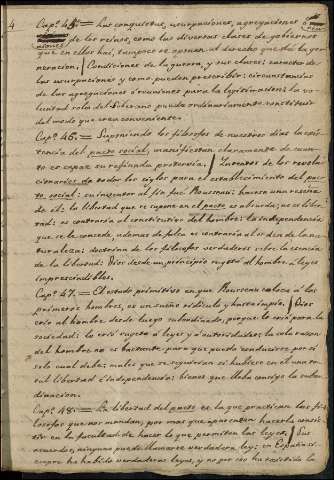 4
Cap.º 45. = Las conquistas, usurpaciones, agregaciones ó
reuniones de los reinos, como las diversas clases de gobiernos
que en ellos hay, tampoco se oponen al derecho que dá la ge-
neracion. / Condiciones de la guerra, y sus clases: caracter de
las usurpaciones y como pueden prescribir: circunstancias
de las agregaciones ó reuniones para la legitimidad: la vo-
luntad sola del Soberano puede ordinariamente constituir
del modo que crea conveniente.
Cap.º 46. = Suponiendo los filosofos de nuestros dias la exis-
tencia del pacto social, manifiestan claramente de cuan-
to es capaz su refinada protervia. / Inventos de los revolu-
cionarios de todos los siglos para el establecimiento del pac-
to social: su inventor al fin fue Rousseau: hacese una reseña
de él: la libertad que se supone en el pacto es absurda; no es liber-
tad: es contraria al constitutivo del hombre: la independencia
que se le concede, ademas de falsa es contraria al orden de la na-
turaleza: doctrina de los filosofos verdaderos sobre la esencia
de la libertad: Dios desde un principio sujetó al hombre á leyes
imprescindibles.
Cap.º 47. = El estado primitivo en que Rousseau coloca á los
primeros hombres, es un sueño ridiculo y hasta impio. / Dios
crió al hombre desde luego subordinado, porque lo crió para la
sociedad: lo crió sujeto á leyes y á autoridades: la sola razon
del hombre no es bastante para que pueda conducirse por sí
solo cual debe: males que se seguirian si hubiese en él una to-
tal libertad é independencia: bienes que lleva consigo la subor-
dinacion.
Cap.º 48. = La libertad del pacto es la que practican los fi-
losofos que nos mandan, por mas que aparentan hacerla consis-
tir en la facultad de hacer lo que permiten las leyes. / Sus
acuerdos, ninguno puede llamarse verdadera ley: en España si-
empre ha habido verdaderas leyes, y no por eso ha existido la